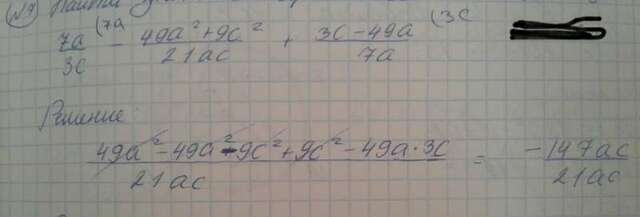 №7 Найти
7a/3c (7a − 49a²+9c²/21ac + 3c−49a/7a (3c
Решение:
49a²−49a²−9c²+9c²−49a·3c/21ac = −147ac/21ac